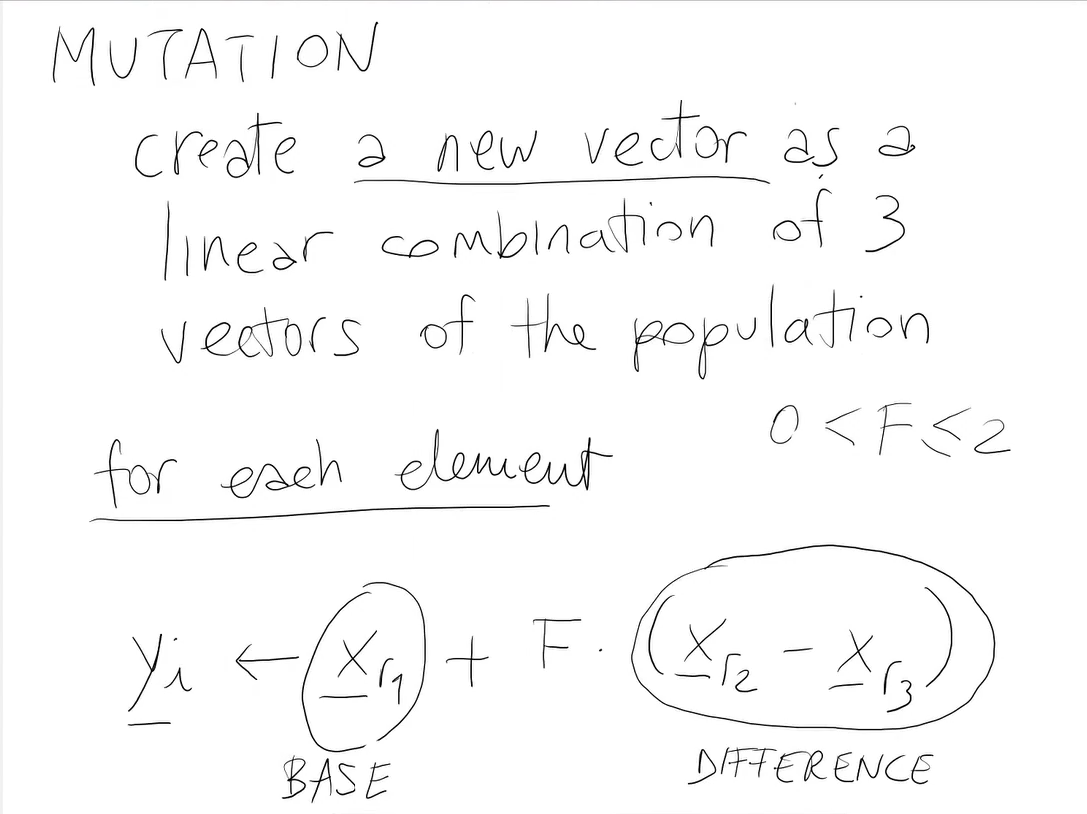 MUTATION
create a new vector as a
linear combination of 3
vectors of the population
0 < F ≤ 2
for each element
y_i ← x_r1 + F · (x_r2 − x_r3)
BASE DIFFERENCE